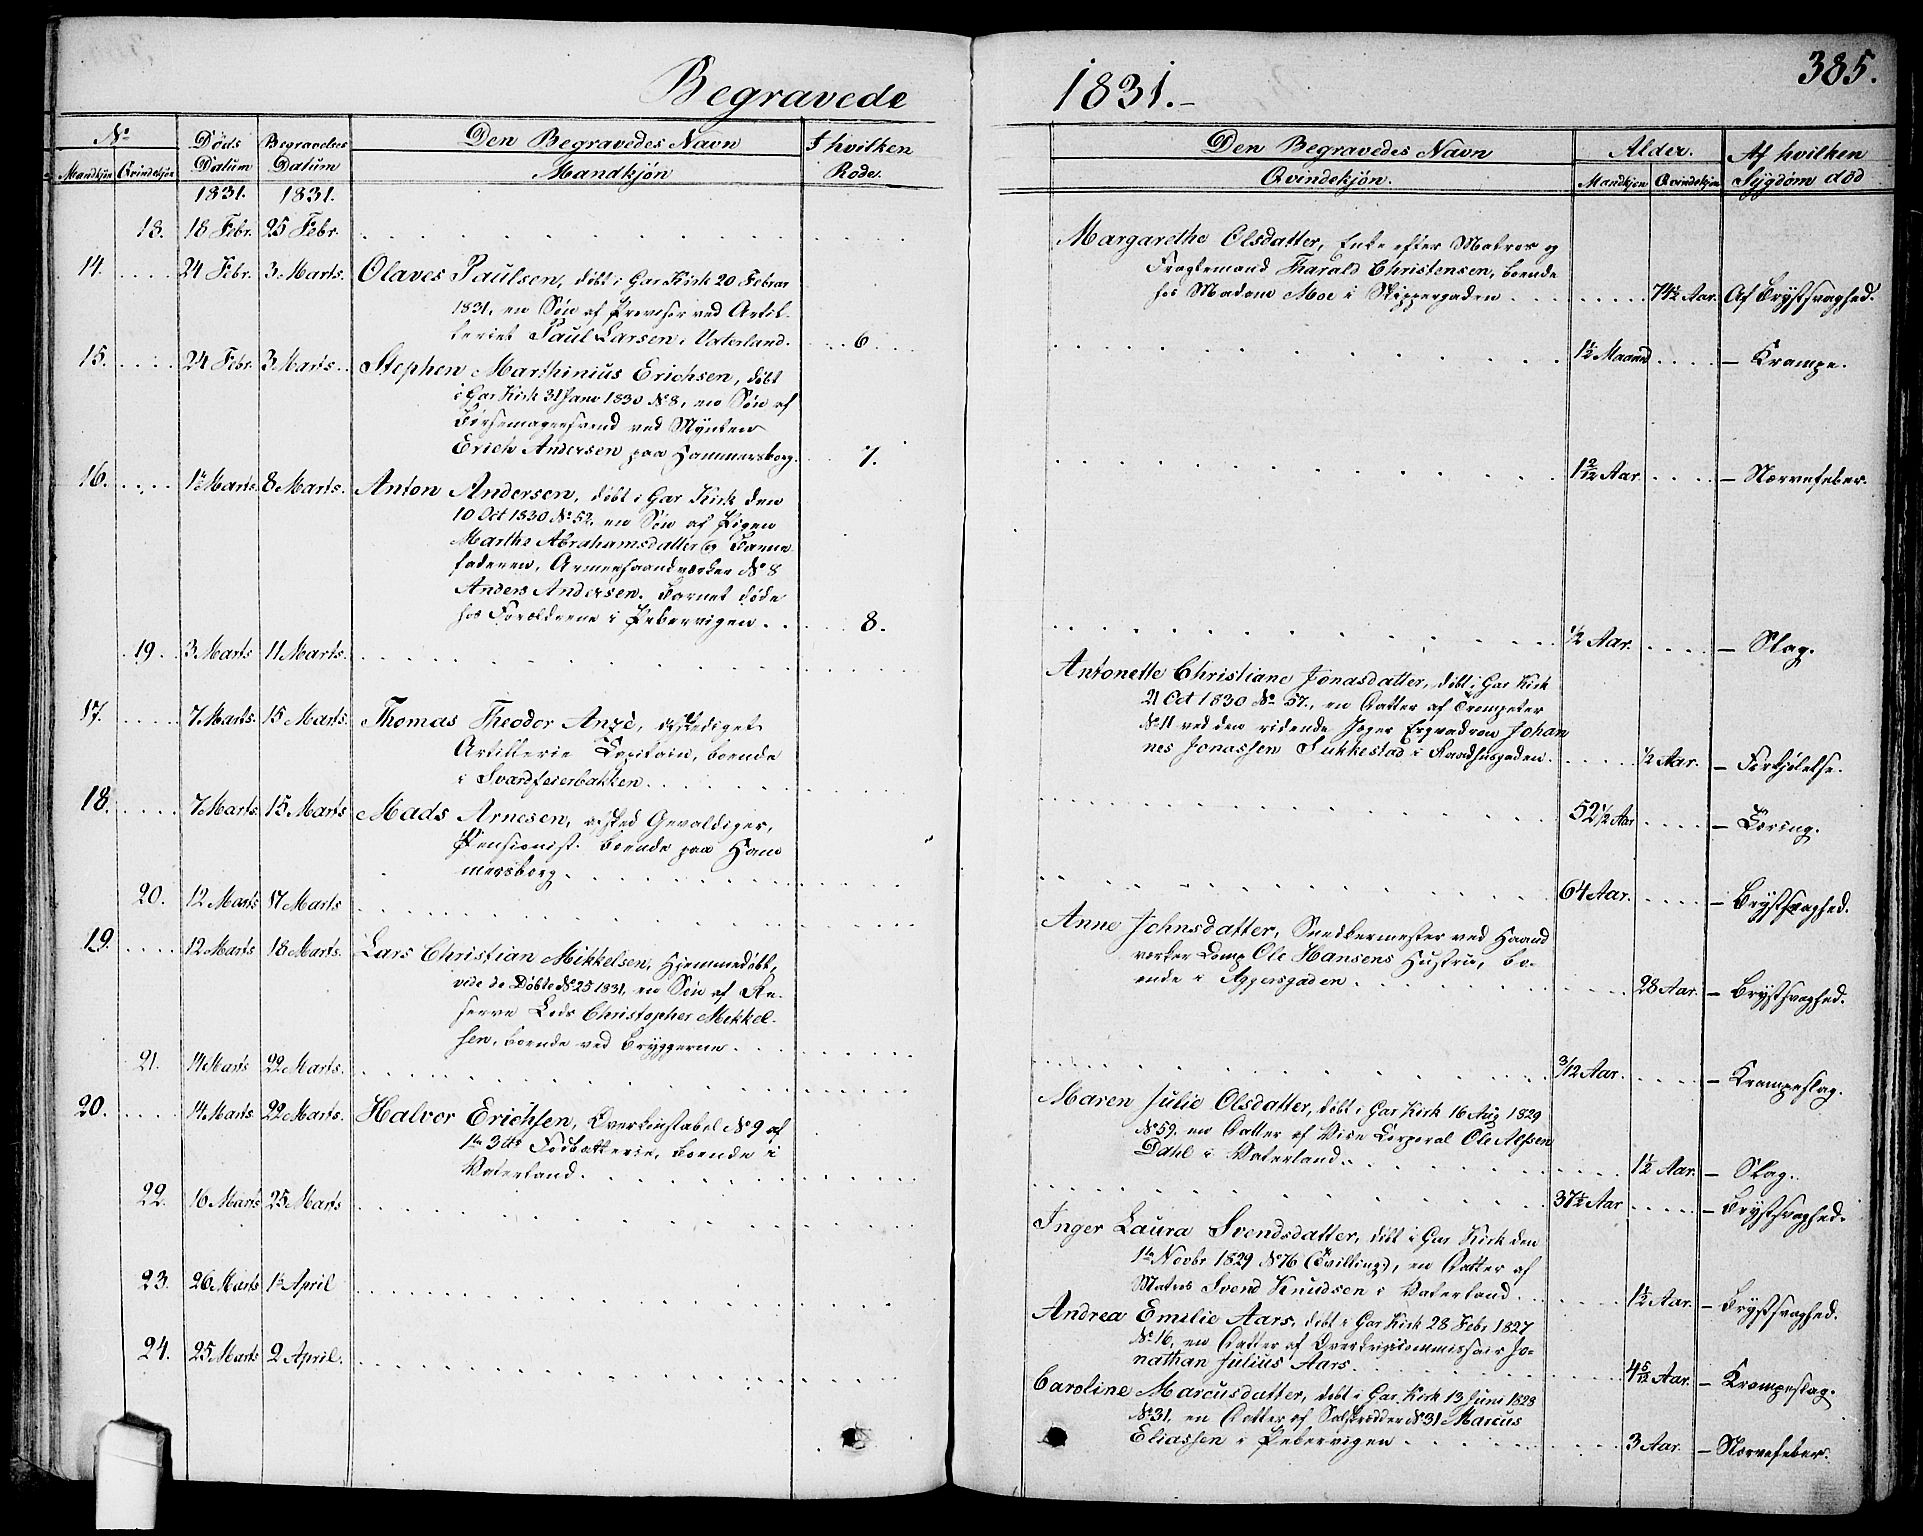 Begravede
1831.-
385.
No
Døds
Begravelses
Den Begravedes Navn
I hvilken
Mandkjøn Qvindekjøn Datum Datum
Mandkjøn
Rode.
1831. 1831.
Den Begravedes Navn
Alder.
Af hvilken
Qvindekjøn.
Mandkjøn Qvindekjøn
Sygdom død
18. 18 Febr. 25 Febr.
14. 24 Febr. 3 Marts. Olaves Paulsen, døbt i Gar Kirk 20 Februar
1831, en Søn af Provisor ved Artil-
leriet Paul Larsen, Vaterland. 6
15. 24 Febr. 3 Marts. Stephen Marthinius Erichsen, døbt
i Gar Kirk 31 Janv 1830 No 8, en Søn af
Børsemagersvend ved Mynten
Erich Andersen paa Hammersborg. 7.
16. 1te Marts. 8 Marts. Anton Andersen, døbt i Gar Kirk den
10 Oct 1830 No 52, en Søn af Pigen
Marthe Abrahamsdatter og Barne
faderen, Armeehaandværker No 8
Anders Andersen. Barnet døde
hos Forældrene i Pebervigen. 8.
19. 3 Marts 11 Marts.
17. 7 Marts. 15 Marts. Thomas Theodor Anzè, afskediget
Artillerie Capitain, boende
i Sværdfeierbakken.
18. 7 Marts. 15 Marts Mads Arnesen, afsked Gevaldiger,
Pensionist. boende paa Ham
mersborg.
20. 12 Marts 17 Marts
19. 12 Marts 18 Marts. Lars Christian Mikkelsen, Hjemmedøbt,
vide de Døbte No 25 1831, en Søn af Re-
serve Lods Christopher Mikkel-
sen, boende ved Bryggerne.
21. 14 Marts 22 Marts.
20. 14 Marts 22 Marts. Halvor Erichsen, Overkonstabel No 9 af
1te 3ttr Fodbatterie, boende i
Vaterland.
22. 16 Marts 25 Marts
23. 26 Marts 1te April
24. 25 Marts 2 April.
Margarethe Olsdatter, Enke efter Matros og
Fragtemand Tharald Christensen, boende
hos Madame Moe i Skippergaden 74½ Aar. Af Brystsvaghed.
1½ Maaned – Krampe.
1 9/12 Aar. – Nervefeber.
½ Aar. – Slag.
Antonette Christiane Jonasdatter, døbt i Gar Kirk
21 Oct 1830 No 57, en Datter af Trompeter
No 11 ved den ridende Jæger Esqvadron Johan
nes Jonassen Sukkestad i Raadhusgaden. ½ Aar. – Forkjølelse.
52½ Aar – Tæring.
64 Aar. – Brystsvaghed.
Anne Johnsdatter, Snedkermester ved Haand
værker Comp Ole Hansens Hustru, bo-
ende i Aggersgaden. 28 Aar. – Brystsvaghed.
3/12 Aar. – Krampeslag.
Maren Julie Olsdatter, døbt i Gar Kirk 16 Aug 1829
No 59, en Datter af Vice Corporal Ole Alfsen
Dahl i Vaterland. 1½ Aar. – Slag.
37½ Aar – Brystsvaghed.
Inger Laura Svendsdatter, døbt i Gar Kirk den
1te Novbr 1829 No 76 (Tvilling), en Datter af
Matros Svend Knudsen i Vaterland. 1½ Aar. – Brystsvaghed.
Andrea Emilie Aars, døbt i Gar Kirk 28 Febr 1827
No 16, en Datter af Overkrigscommissair Jo-
nathan Julius Aars. 4 5/12 Aar. – Krampeslag.
Caroline Marcusdatter, døbt i Gar Kirk 13 Juni 1828
No 31, en Datter af No 31 Marcus
Eliassen i Pebervigen 3 Aar. – Nervefeber.